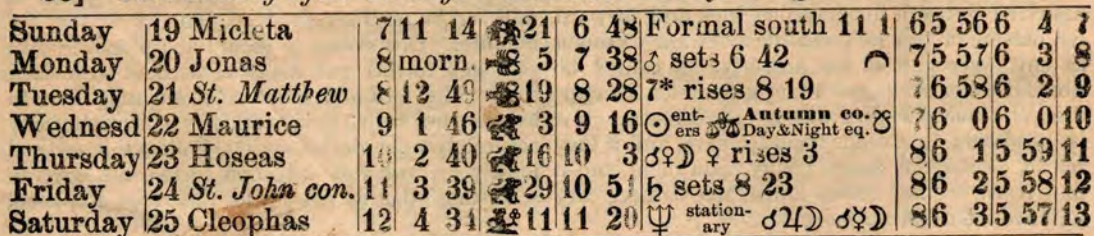 Sunday 19 Micleta 7 11 14 21 6 48 Formal south 11 1 6 5 56 6 4 7
Monday 20 Jonas 8 morn. 5 7 38 ♂ sets 6 42 7 5 57 6 3 8
Tuesday 21 St. Matthew 8 12 49 19 8 28 7* rises 8 19 7 6 58 6 2 9
Wednesd 22 Maurice 9 1 46 3 9 16 ☉ enters ♎ Autumn co. Day&Night eq. ☋ 7 6 0 6 0 10
Thursday 23 Hoseas 10 2 40 16 10 3 ☌♀☽ ♀ rises 3 8 6 1 5 59 11
Friday 24 St. John con. 11 3 39 29 10 51 ♄ sets 8 23 8 6 2 5 58 12
Saturday 25 Cleophas 12 4 31 11 11 20 ♆ stationary ☌♃☽ ☌☿☽ 8 6 3 5 57 13